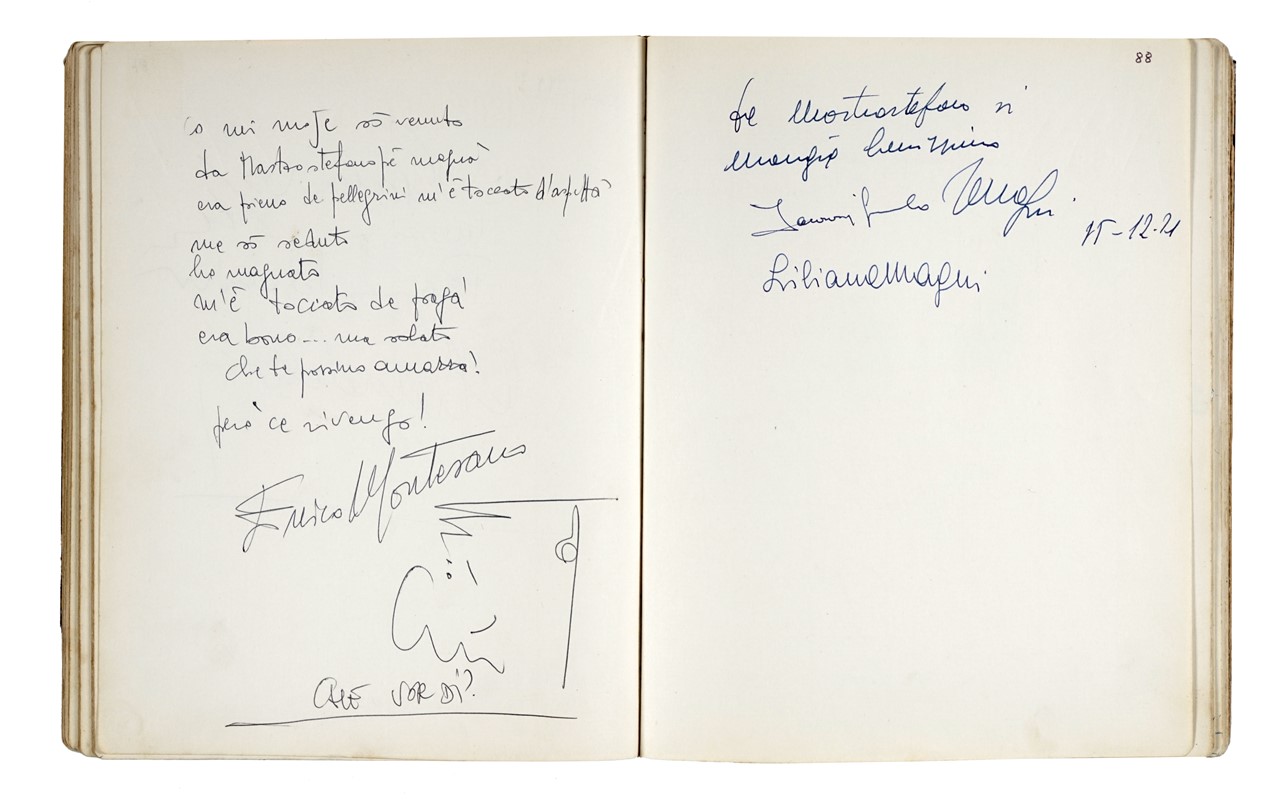 co mi moje sò venuto
da Mastrostefano pé magnà
era pieno de pellegrini m'è toccato d'aspettà
me sò seduto
ho magnato
m'è toccato de pagà
era bono... ma salato
che te possino ammazzà!
però ce rivengo!
Enrico Montesano
CHE VOR DÌ?
88
Da Mastrostefano si
mangia benissimo
Magni
15-12-71
Liliana Magni